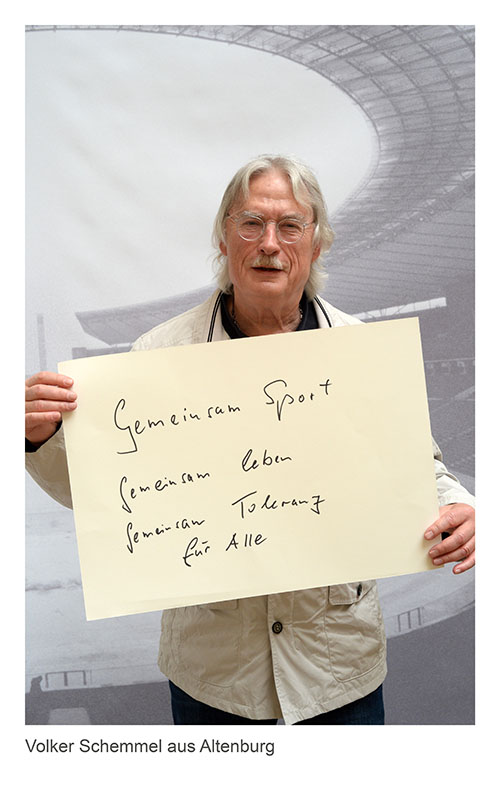 Gemeinsam Sport
gemeinsam leben
gemeinsam Toleranz
für Alle
Volker Schemmel aus Altenburg